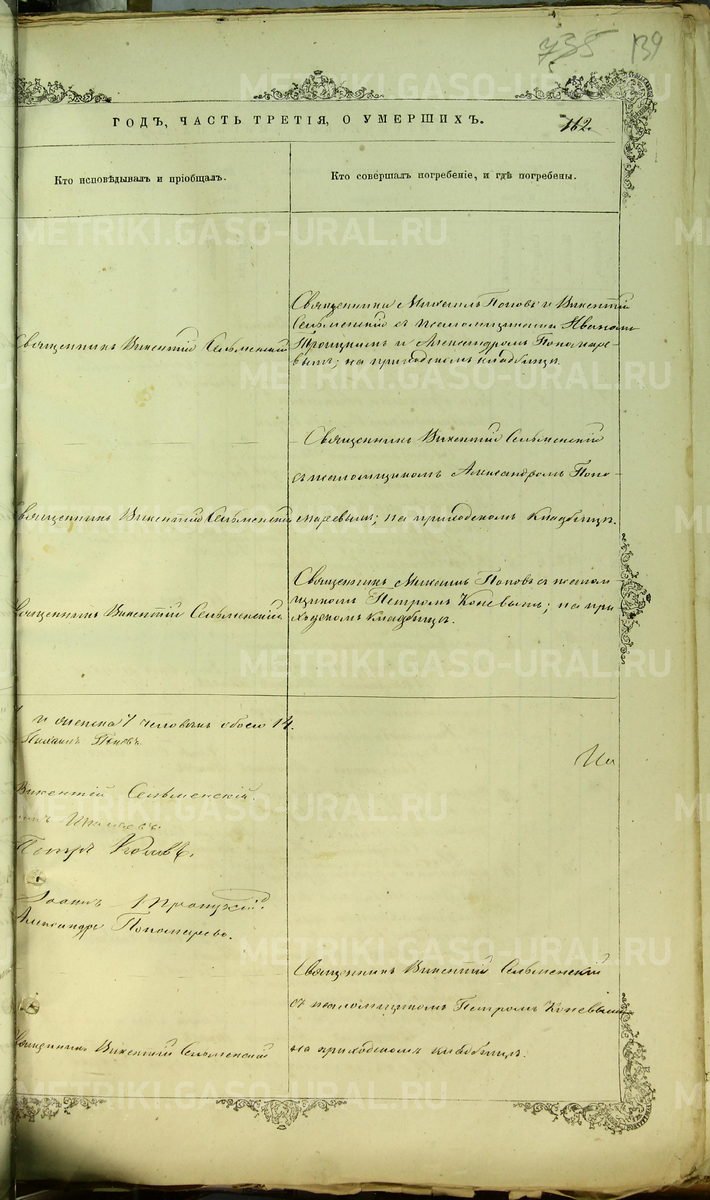 735 139
ГОДЪ, ЧАСТЬ ТРЕТІЯ, О УМЕРШИХЪ. 162.
Кто исповѣдывалъ и пріобщалъ.
Кто совершалъ погребеніе, и гдѣ погребены.
METRIKI.GASO-URAL.RU
Священники Михаилъ Поповъ и Викентій
Сельменскій съ псаломщиками Иваномъ
Троицкимъ и Александромъ Пономаре-
вымъ; на приходскомъ кладбищѣ.
Священникъ Викентій Сельменскій
Священникъ Викентій Сельменскій
съ псаломщикомъ Александромъ Поно-
маревымъ; на приходскомъ кладбищѣ.
Священникъ Викентій Сельменскій
Священникъ Михаилъ Поповъ съ псалом
щикомъ Петромъ Коневымъ; на при
ходскомъ кладбищѣ.
Священникъ Викентій Сельменскій
и женска 7 человѣкъ обоего 14.
Михаилъ Поповъ.
Викентій Сельменскій.
Петръ Коневъ.
Іоаннъ Троицкій
Александръ Пономаревъ.
Священникъ Викентій Сельменскій
съ псаломщикомъ Петромъ Коневымъ
на приходскомъ кладбищѣ.
Священникъ Викентій Сельменскій